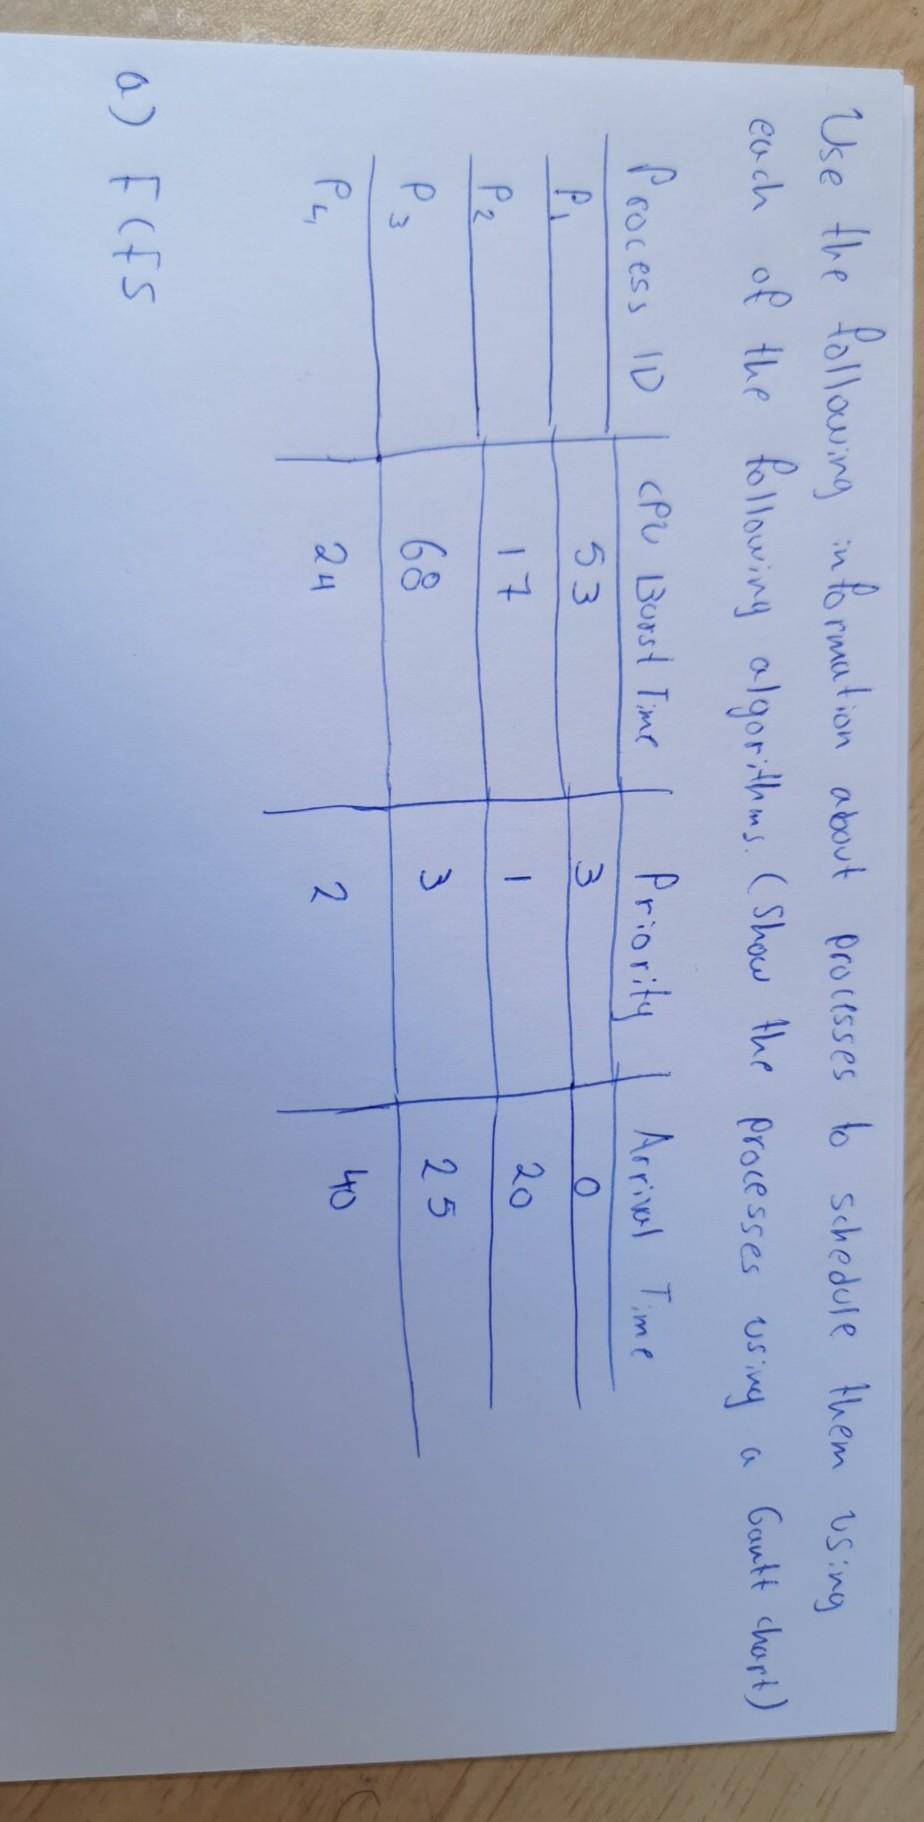 Use the following information about processes to schedule them using
each of the following algorithms. (Show the processes using a Gantt chart)
Process ID CPU Burst Time Priority Arrival Time
P1 53 3 0
P2 17 1 20
P3 68 3 25
P4 24 2 40
a) FCFS